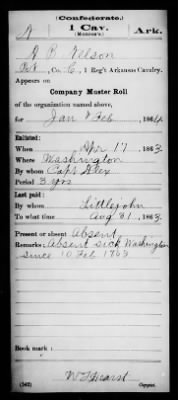 (Confederate.)
N 1 Cav. Ark.
(Monroe's.)
A B Nelson
Pvt, Co. C, 1 Reg't Arkansas Cavalry.
Appears on
Company Muster Roll
of the organization named above,
for Jan & Feb, 1864.
Enlisted:
When Apr 17, 1863.
Where Washington
By whom Capt Alex
Period 3 yrs
Last paid:
By whom Littlejohn
To what time Aug 31, 1863.
Present or absent Absent
Remarks: Absent sick Washington
since 10 Feb 1863
Book mark:
(542) W F Hearst
Copyist.